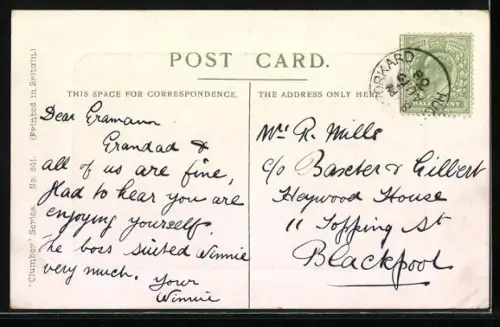 POST CARD.
THIS SPACE FOR CORRESPONDENCE.
THE ADDRESS ONLY HERE
Dear Gramann
Grandad &
all of us are fine,
Glad to hear you are
enjoying yourself.
The boss suited Winnie
very much. Your
Winnie
Mr R. Mills
c/o Baxter & Gilbert
Heywood House
11 Topping St
Blackpool
"Clumber" Series. No. 851. (Printed in Britain.)
HALFPENNY